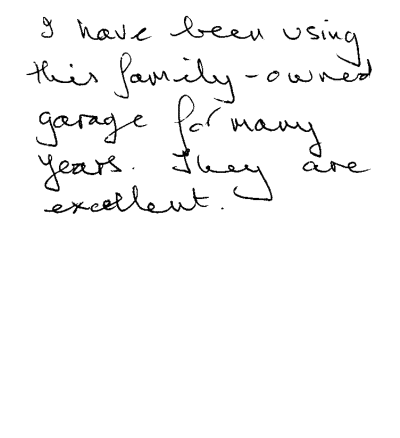 I have been using
this family-owned
garage for many
years. They are
excellent.